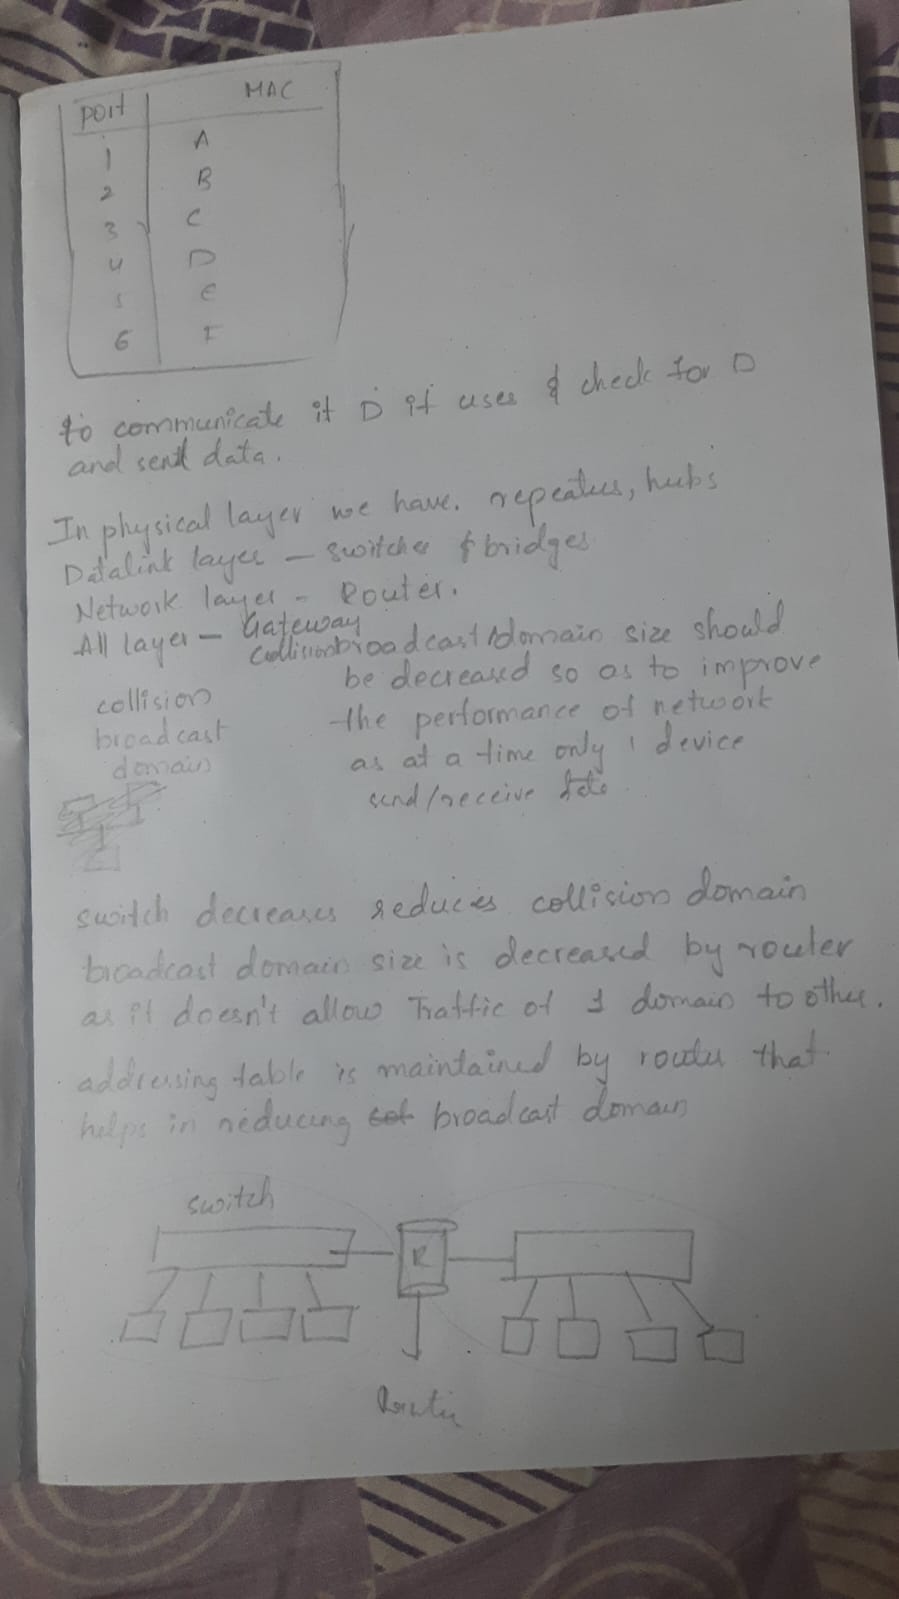 Port MAC
1 A
2 B
3 C
4 D
5 E
6 F
to communicate it D it uses & check for D
and sent data.
In physical layer we have. repeaters, hubs
Datalink layer - switches & bridges
Network layer - Router.
All layer - Gateway
collision
broadcast
domain
collision broadcast domain size should
be decreased so as to improve
the performance of network
as at a time only 1 device
send/receive
switch decreases reduces collision domain
broadcast domain size is decreased by router
as it doesn't allow Traffic of 1 domain to other.
addressing table is maintained by router that
helps in reducing broadcast domain
switch
R